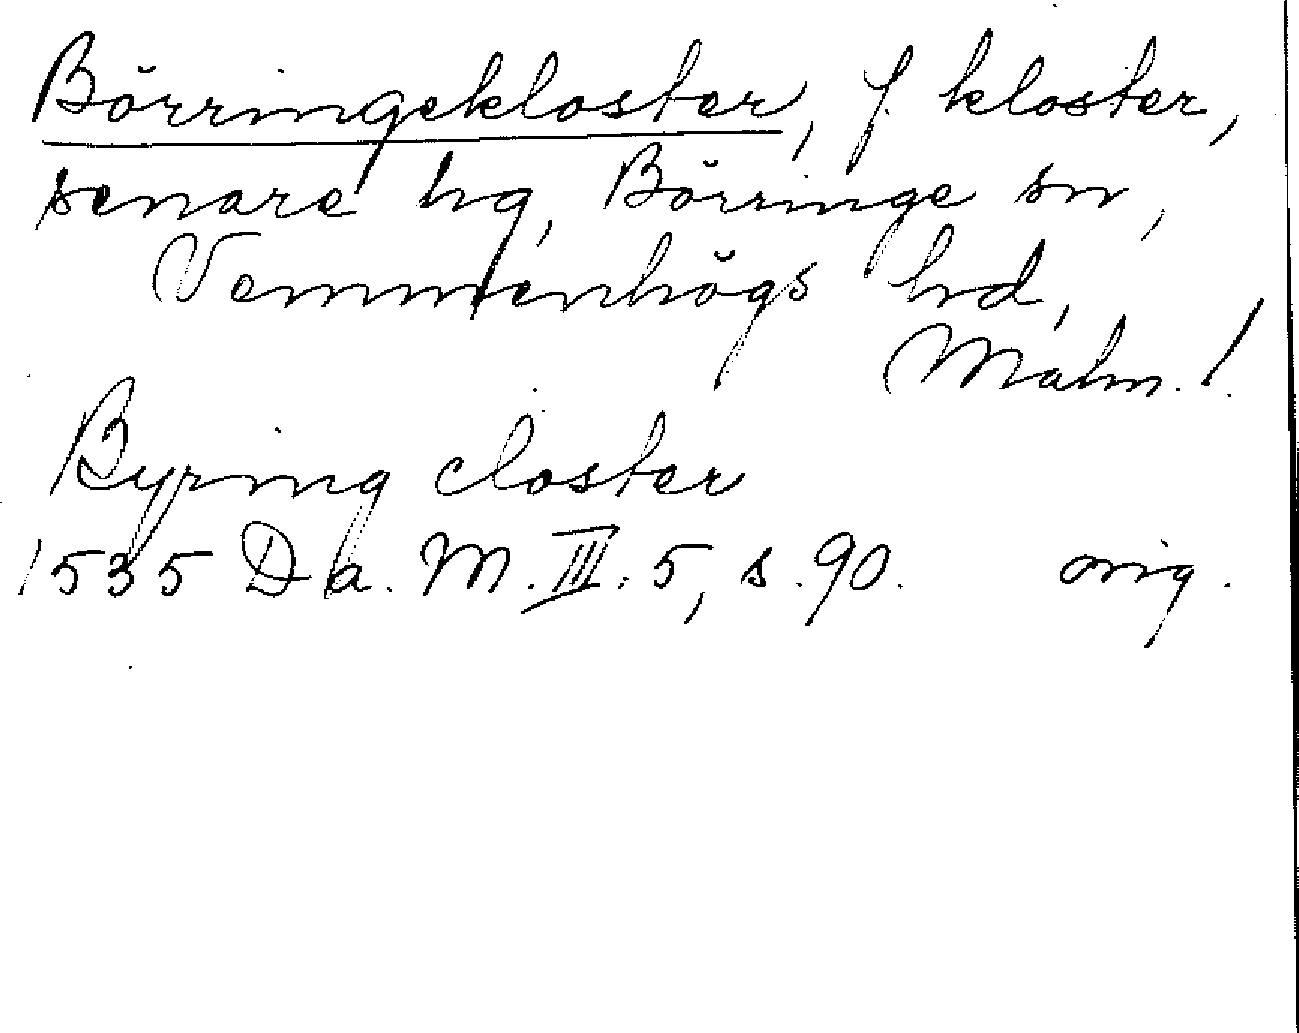 Börringekloster, f. kloster,
senare hg, Börringe sn,
Vemmenhögs hd,
Malm. l.
Byring closter
1535 Da. M. III. 5, s. 90. orig.